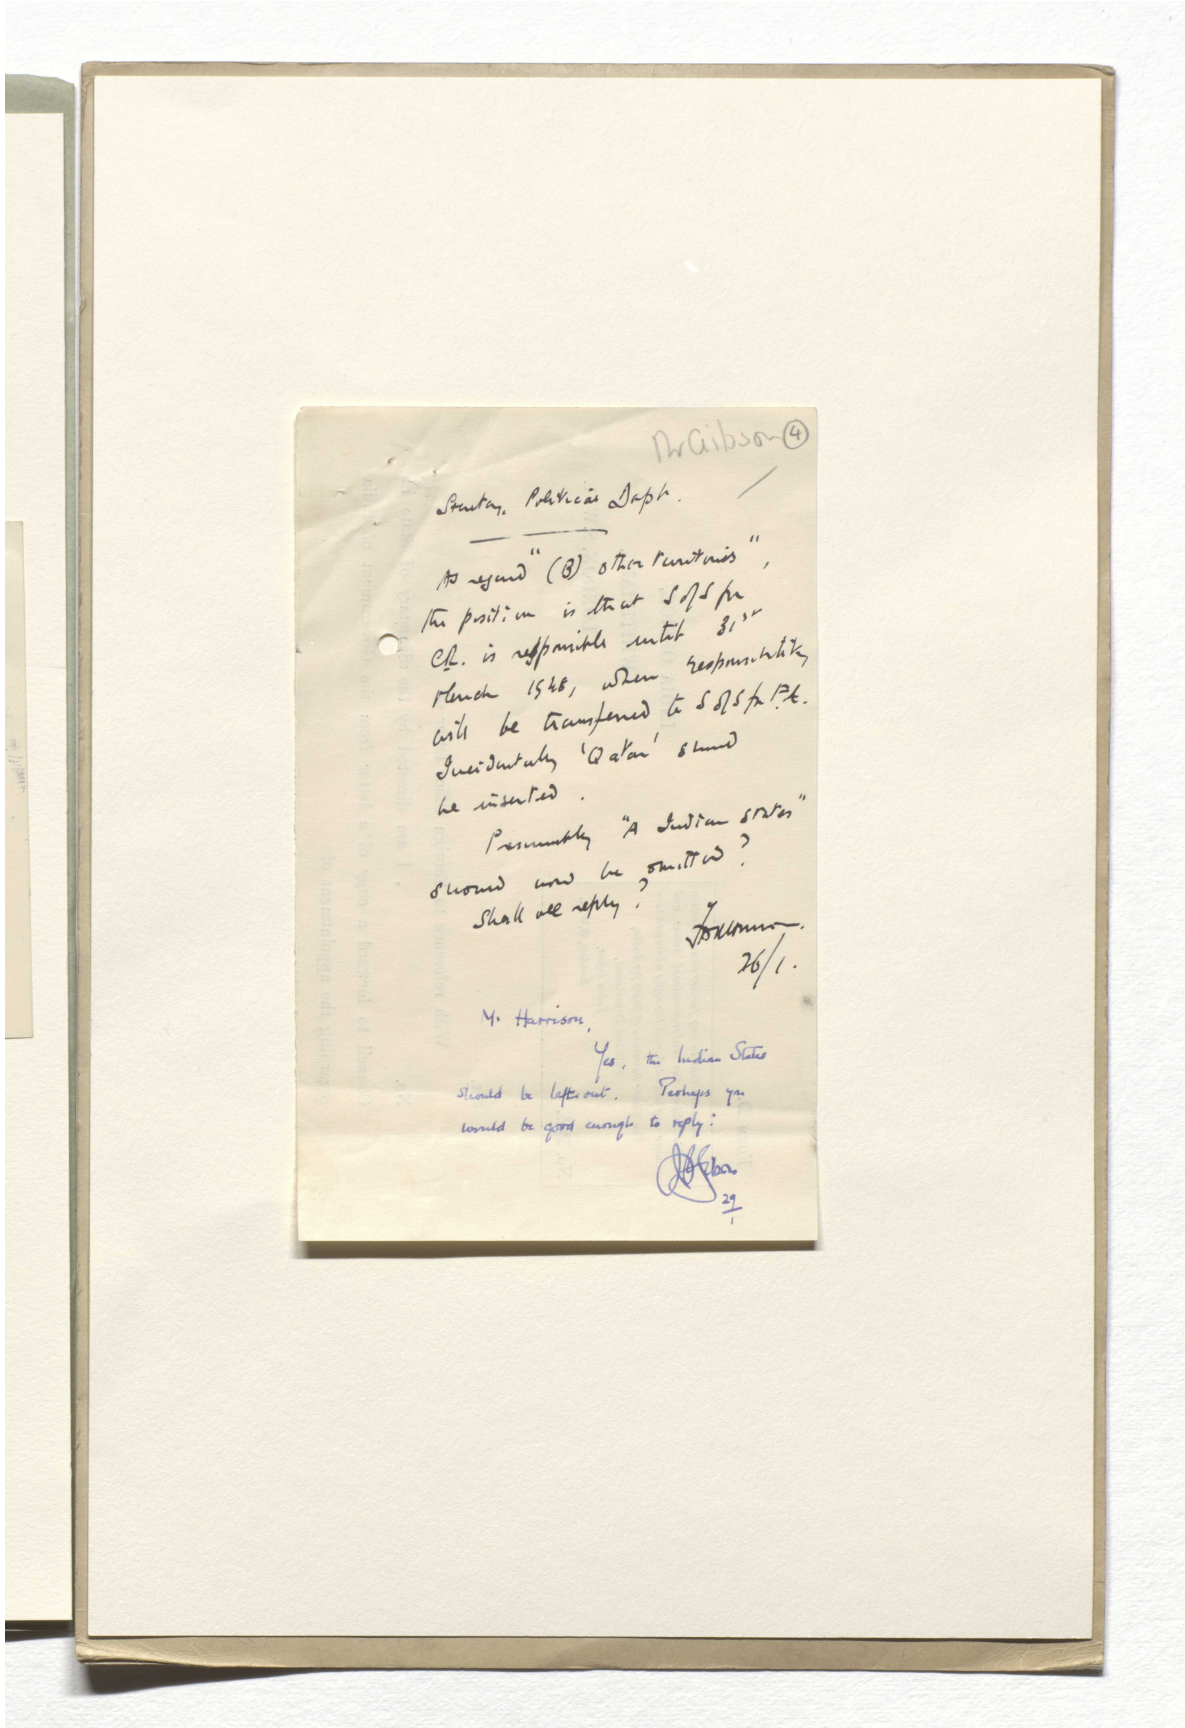 Mr Gibson 4
Secretary, Political Dept.
As regard "(B) other territories",
the position is that S of S for
C.R. is responsible until 31st
March 1948, when responsibility
will be transferred to S of S for F.A.
Incidentally 'Qatar' should
be inserted.
Presumably "A Indian States"
should now be omitted?
Shall we reply?
26/1.
Mr. Harrison,
Yes, the Indian States
should be left out. Perhaps you
would be good enough to reply?
29
1